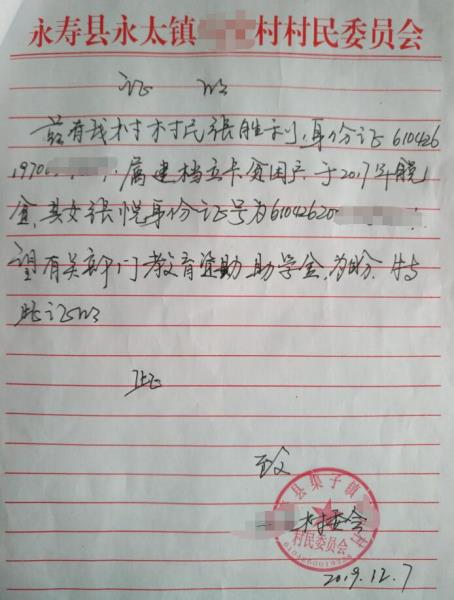 永寿县永太镇 村村民委员会
证 明
兹有我村村民张胜利,身份证610426
1970 ,属建档立卡贫困户,于2017年脱
贫,其女张悦身份证号为61042620
望有关部门教育资助助学金,为盼,特
此证明
此
致
村委会
县渠子镇
村民委员会
2019.12.7